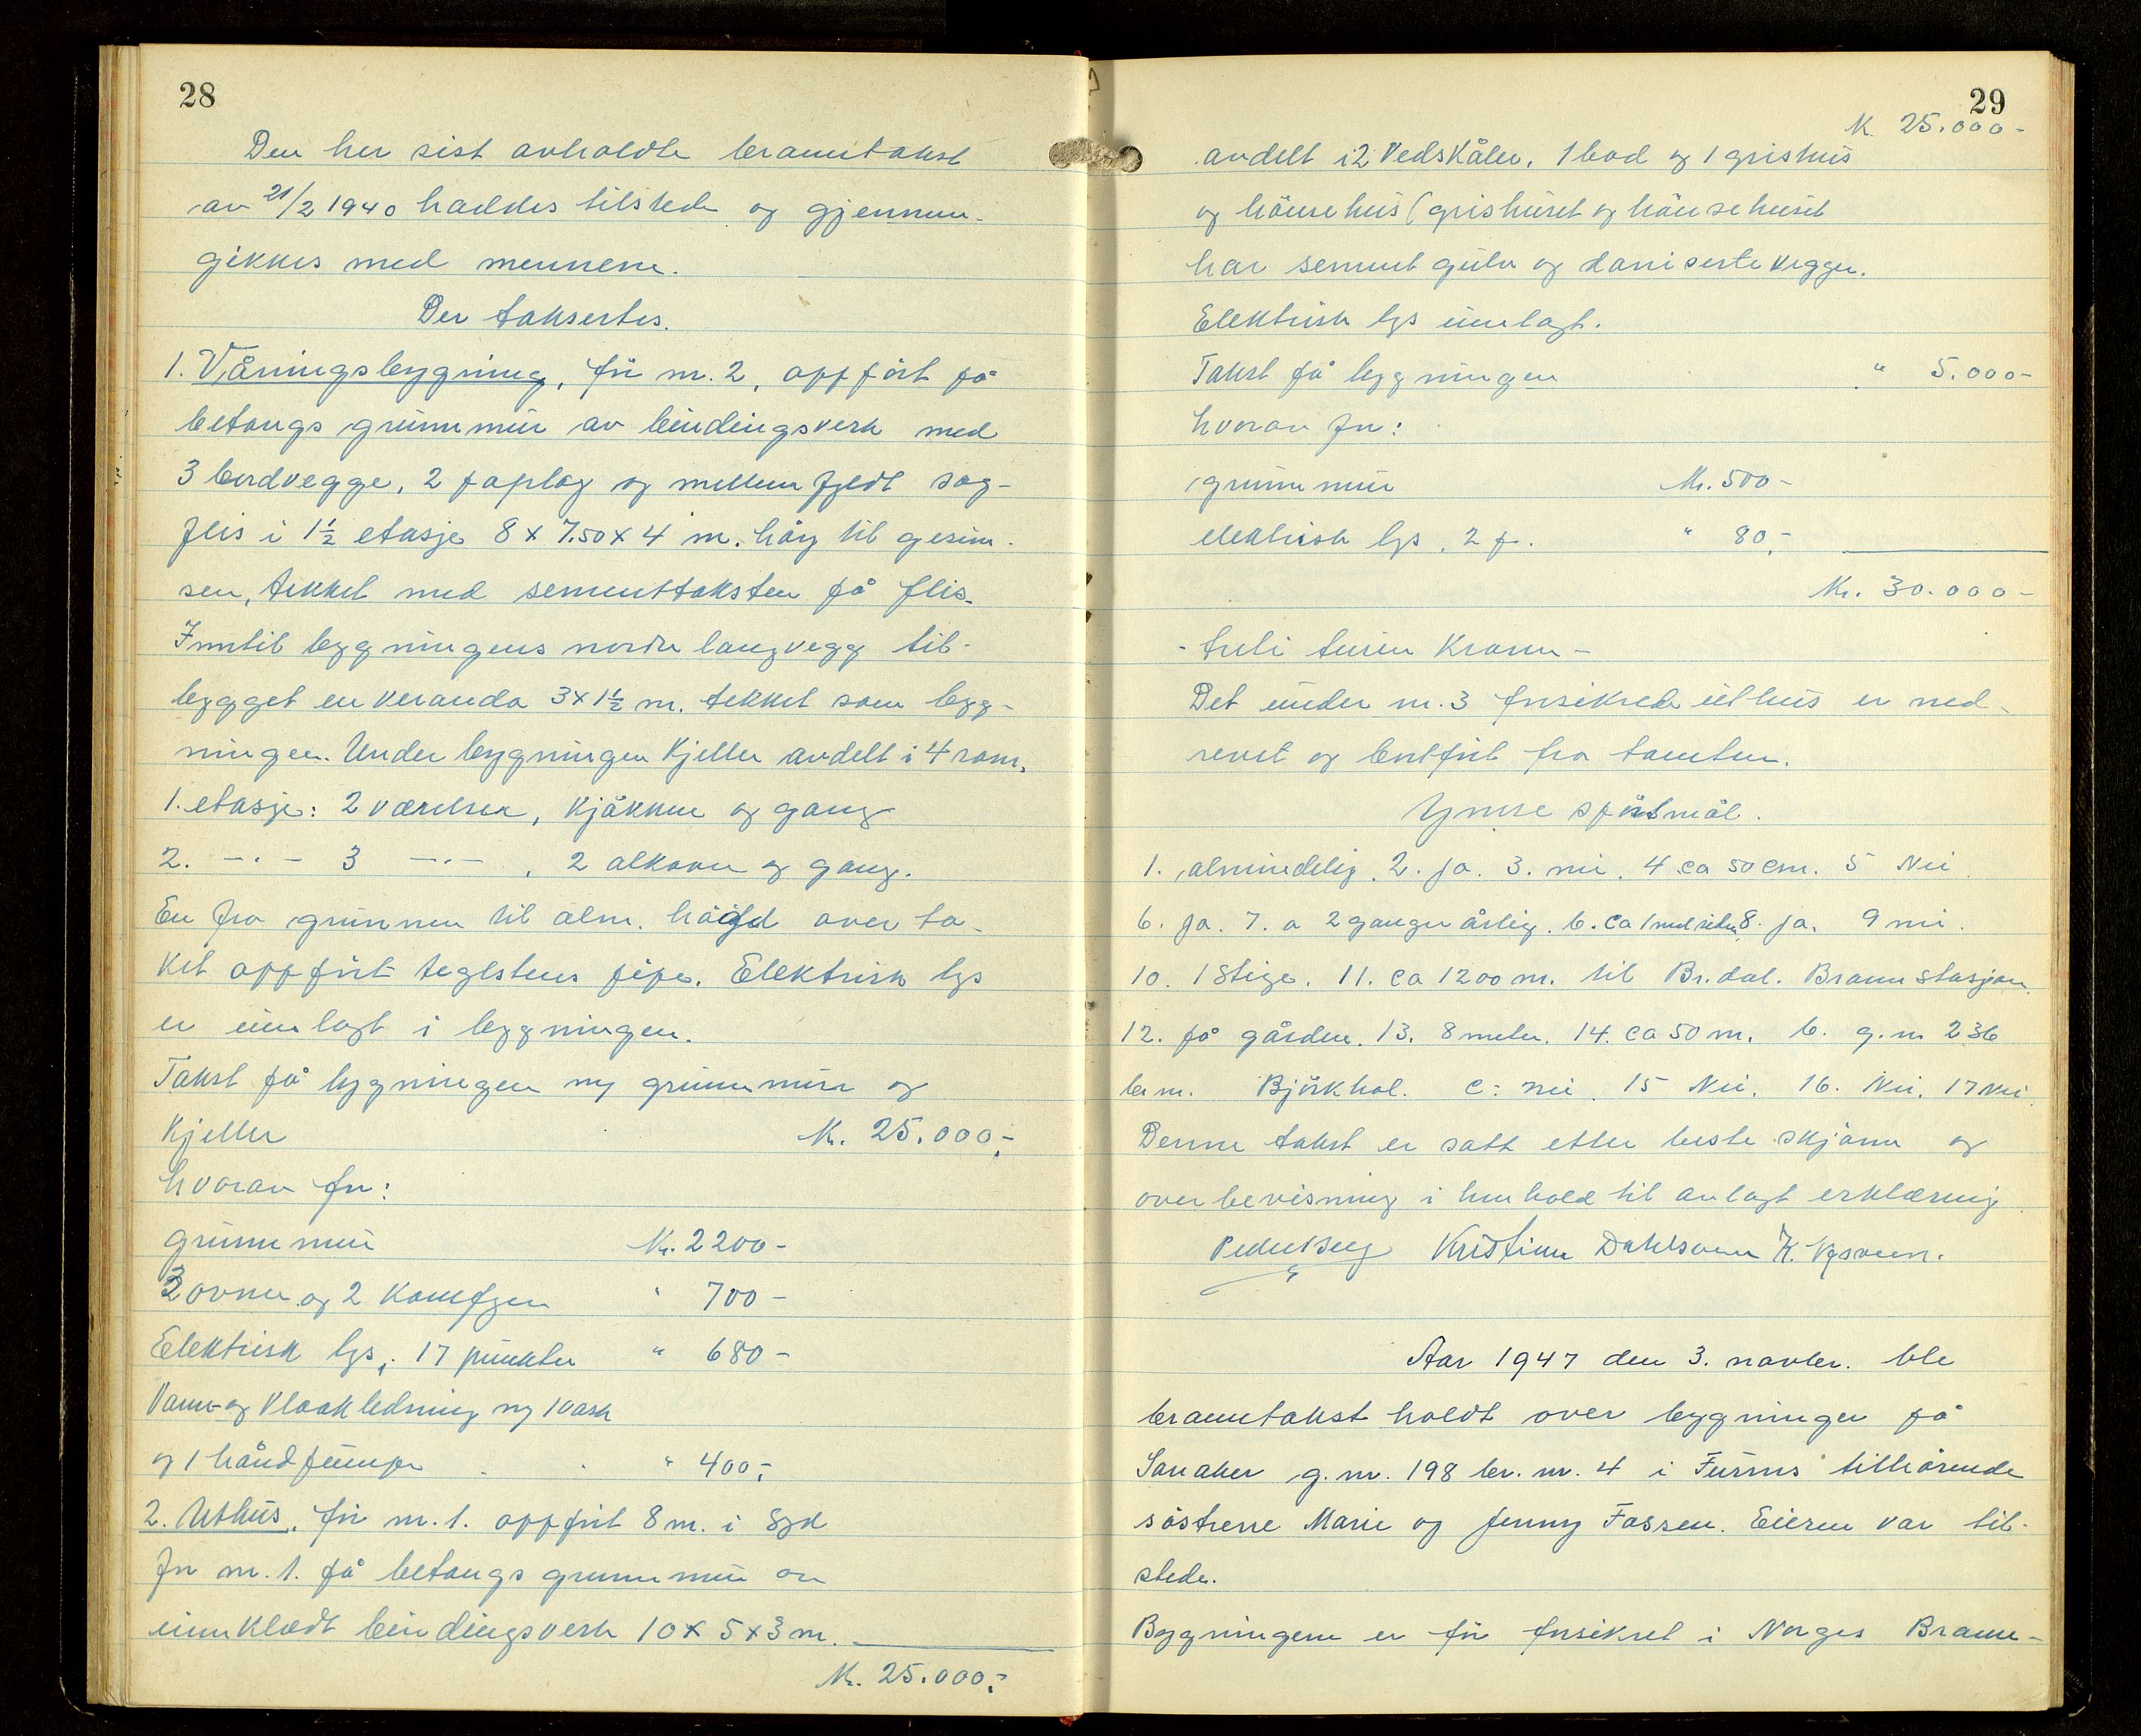 28
Den her sist avholdte branntakst
av 21/2 1940 haddes tilstede og gjennem-
gikkes med mennene.
Der taksertes.
1. Våningsbygning, før nr. 2, oppført på
betongs grunnmur av bindingsverk med
3 bordvegge, 2 paplag og mellemfyldt sag-
flis i 1½ etasje 8 x 7.50 x 4 m. høy til gesim-
sen, tekket med sementtaksten på flis.
Inntil bygningens nordre langvegg til-
bygget en veranda 3 x 1½ m. tekket som byg-
ningen. Under bygningen kjeller avdelt i 4 rom,
1. etasje: 2 værelser, kjøkken og gang
2. -"- 3 -"-, 2 alkover og gang.
En fra grunnen til alm. høyde over ta-
ket oppført teglstens pipe. Elektrisk lys
er innlagt i bygningen.
Takst på bygningen og grunnmur og
kjeller Kr. 25.000,-
hvorav for:
grunnmur Kr. 2200-
3 ovner og 2 komfyrer " 700-
Elektrisk lys, 17 punkter " 680-
Vann- og kloakledning og 1 vask
og 1 håndpumpe " 400,-
2. Uthus, før nr. 1. oppført 8 m. i Syd
for nr. 1. på betongs grunnmur av
innklædt bindingsverk 10 x 5 x 3 m.
Kr. 25.000,-
29
K. 25.000-
avdelt i 2 vedskåler, 1 bod og 1 grishus
og hönsehus (grishuset og hönsehuset
har sement gulv og vegger.
Elektrisk lys innlagt.
Takst på bygningen " 5.000-
hvorav for:
grunnmur Kr. 500-
elektrisk lys, 2 p. " 80,-
Kr. 30.000-
- treti tusen kroner -
Det under nr. 3 forsikrede uthus er ned-
revet og bortført fra tomten.
Ymse spörsmål.
1. almindelig. 2. ja. 3. nei. 4 ca 50 cm. 5 Nei.
6. ja. 7. a 2 ganger årlig. b. ca 1 mnd siden 8. ja. 9 nei.
10. 1 Stige. 11. ca 1200 m. til Br.dal. Brannstasjon.
12. på gården. 13. 8 meter. 14. ca 50 m. b. g.nr 236
br nr. Björkhol. c: nei. 15 Nei. 16. Nei. 17 Nei.
Denne takst er satt etter beste skjønn og
overbevisning i henhold til avlagt erklæring.
Peder Berg Kristian Dahlsveen K. Nysveen.
Aar 1947 den 3. novbr. ble
branntakst holdt over bygninger på
Sanaker g.nr. 198 br. nr. 4 i Furnes tilhørende
søstrene Marie og Jenny Fossen. Eieren var til-
stede.
Bygningene er før forsikret i Norges Brann-